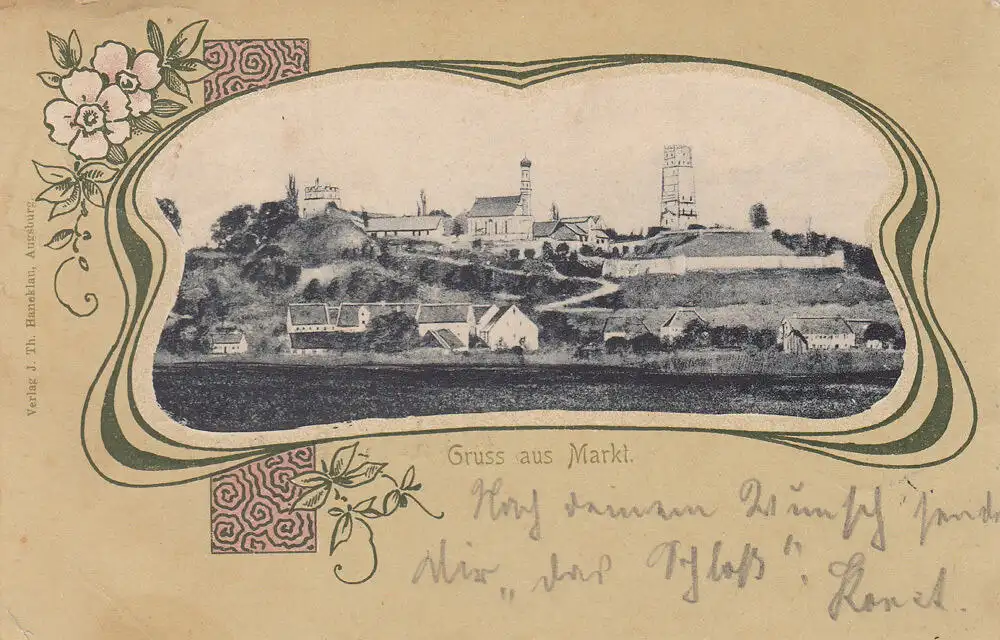 Verlag J. Th. Haneklau, Augsburg.
Gruss aus Markt.
Nach deinem Wunsch sende
Dir „das Schloß“.